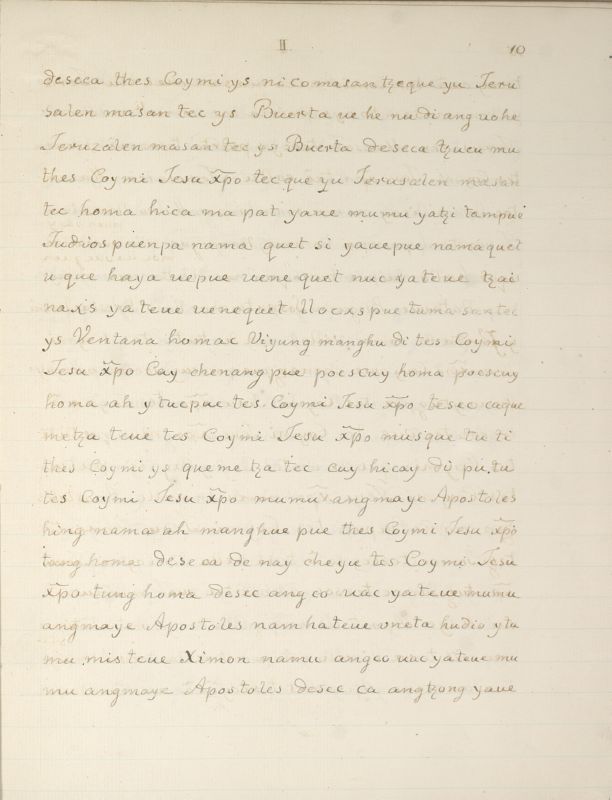 II. 10
deseca thes Coymi ys nicomasan tzeque yu Jeru
salen masan tec ys Buerta ue he nu di ang uohe
Jeruzalen masan tec ys Buerta deseca tzucu mu
thes Coymi Jesu x̃po tec que yu Jerusalen masan
tec homa hica ma pat yaue mumu yatzi tampue
Judios puenpa nama quet si yauepue namaquet
u que haya uepue uene quet nuc yateue tzai
naxs yateue uenequet Uocxs pue tuma santec
ys Ventana homac Viyung manghu di tes Coymi
Jesu x̃po Cay chenang pue pocscuy homa pocscuy
homa ah y tucpue tes Coymi Jesu x̃po tesec caque
metza teue tes Coymi Jesu x̃po musque tu ti
thes Coymi ys que me tza tec cuy hicay di pu, tu
tes Coymi Jesu x̃po mumu angmaye Apostoles
hing nama ah manghue pue thes Coymi Jesu x̃po
tung homa deseca de nay cheyu tes Coymi Jesu
x̃po tung homa desec ang co uac yateue mumu
angmaye Apostoles namhateue vneta hudio ytu
mu mis teue Ximon namu angco uac yateue mu
mu angmaye Apostoles desec ca angtzong yaue